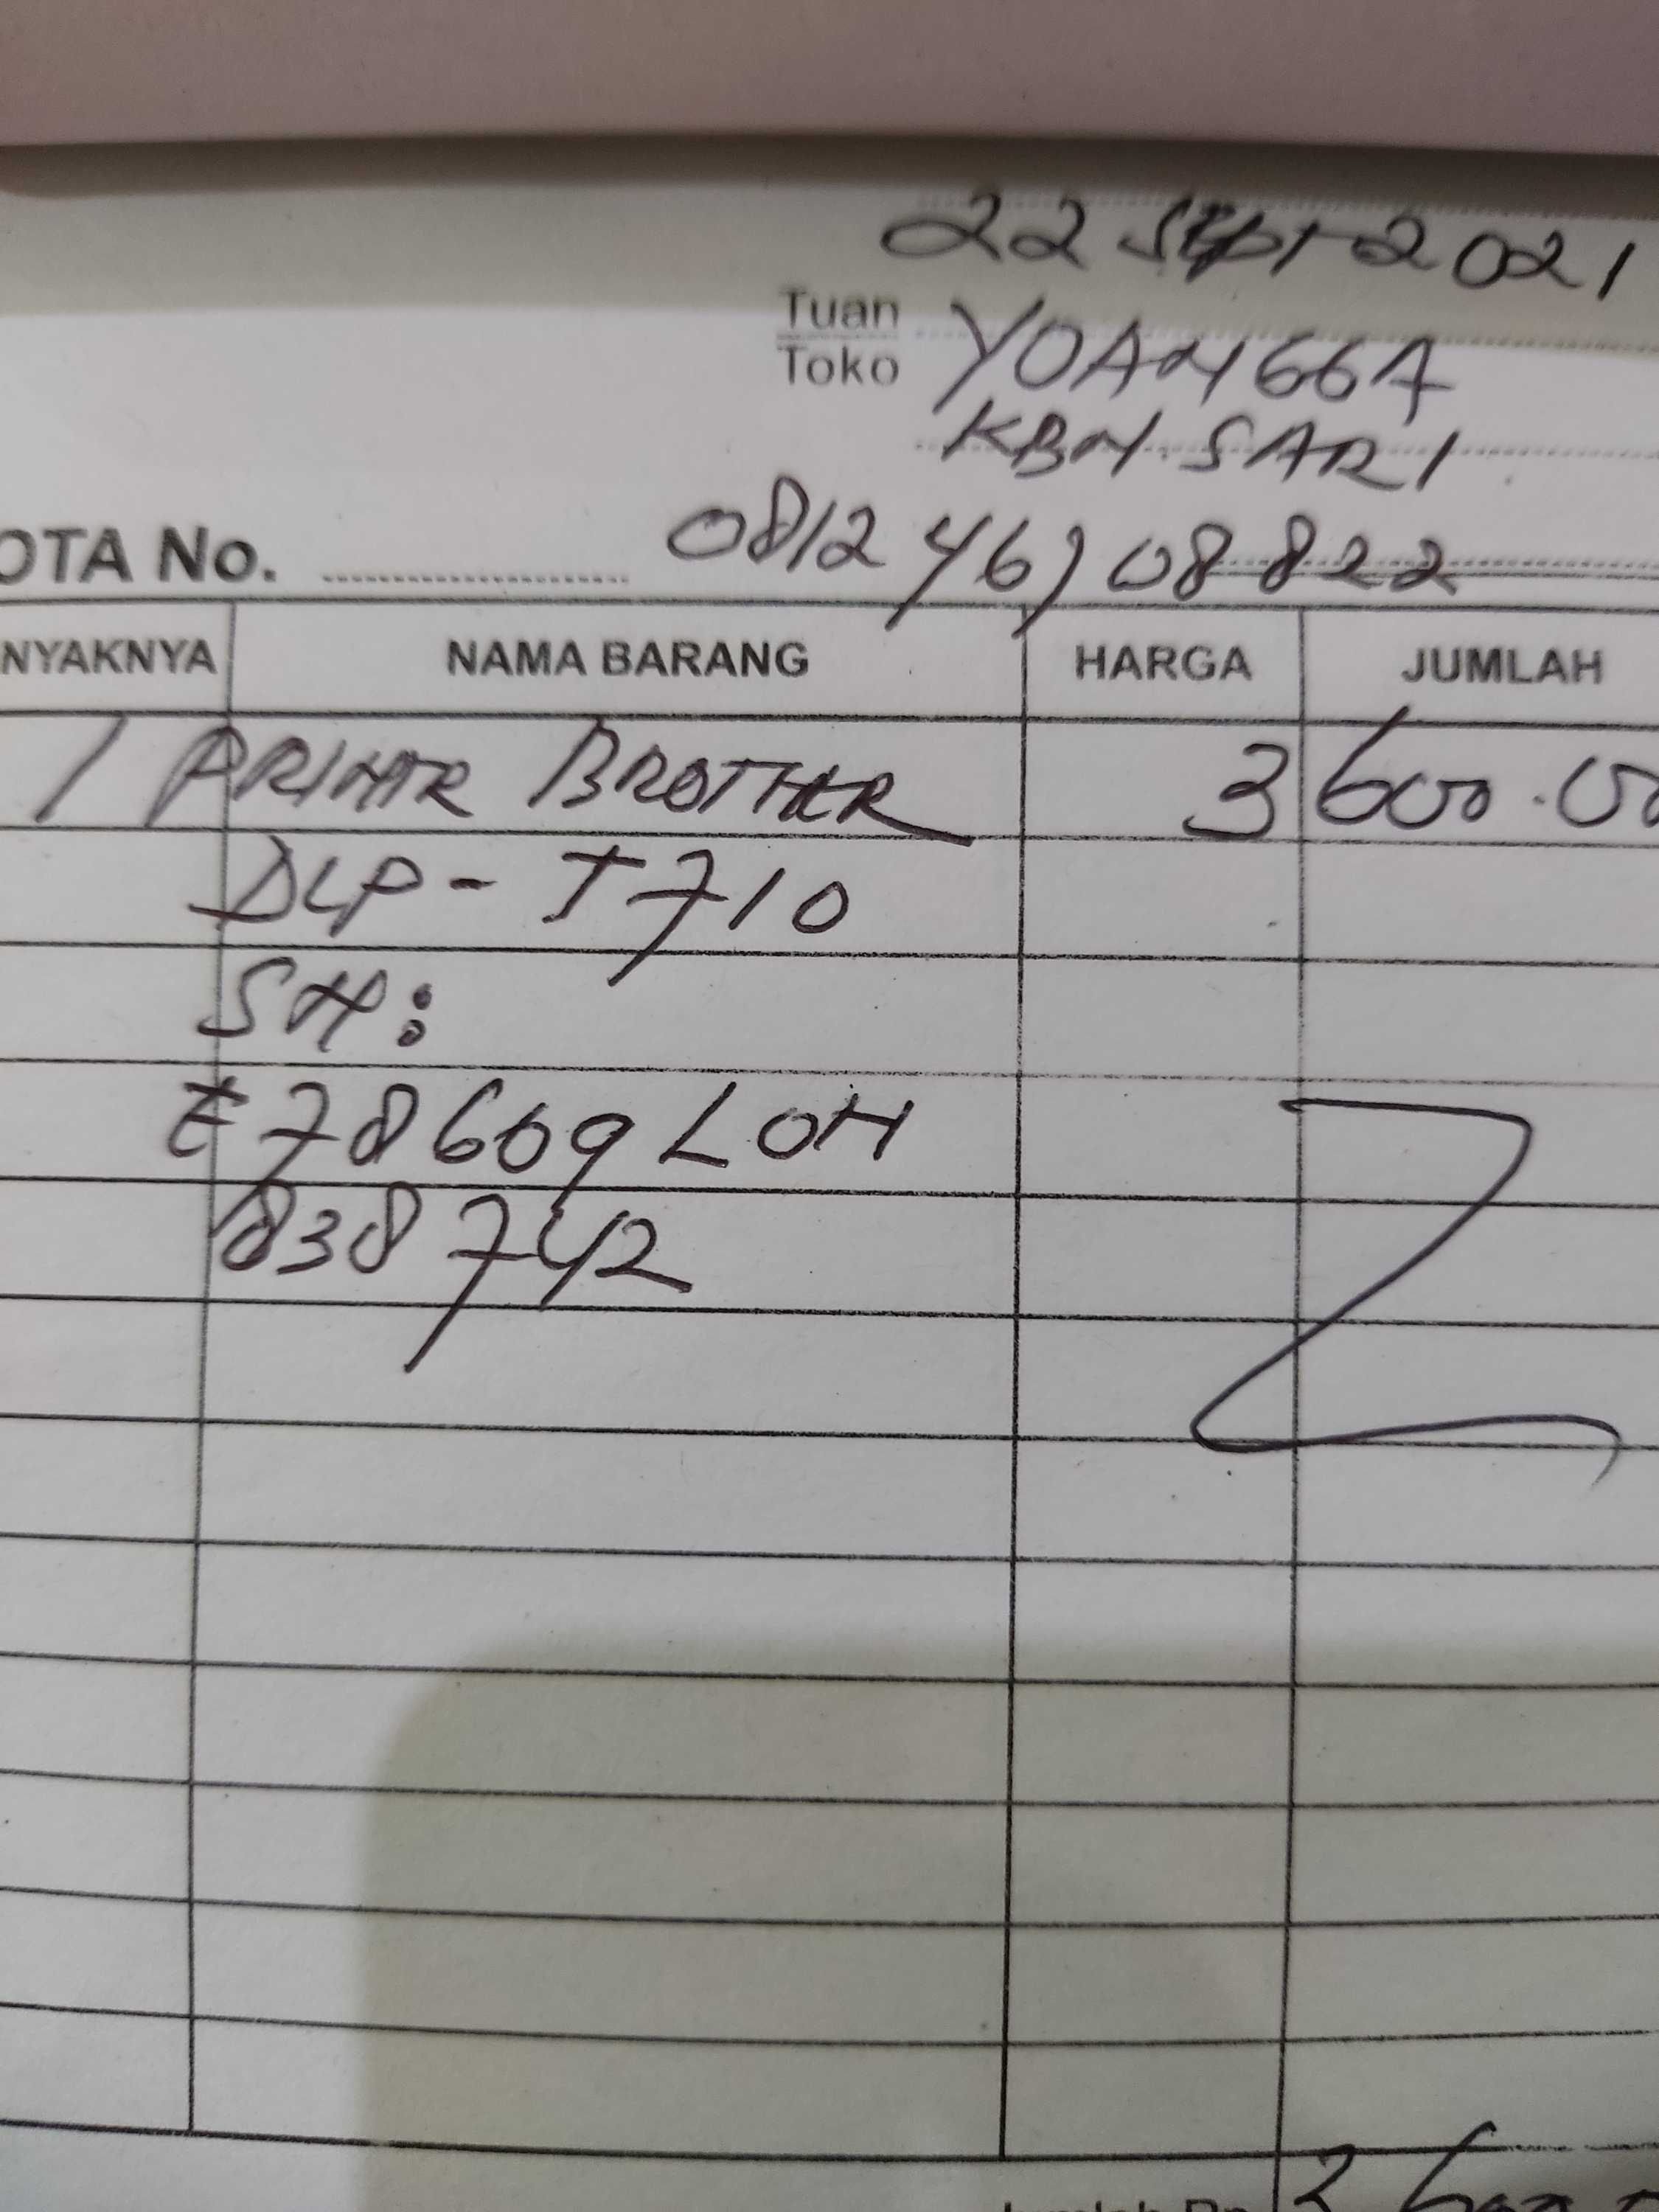 22 Sept 2021
Tuan
Toko
YOANGGA
KBN. SARI
OTA No. ............
0812 467 08822
NYAKNYA NAMA BARANG HARGA JUMLAH
1 PRINTR BROTHER 3 600.00
DCP - T710
SN:
E78609 LON
838742
Jumlah Rp. 3 600.0